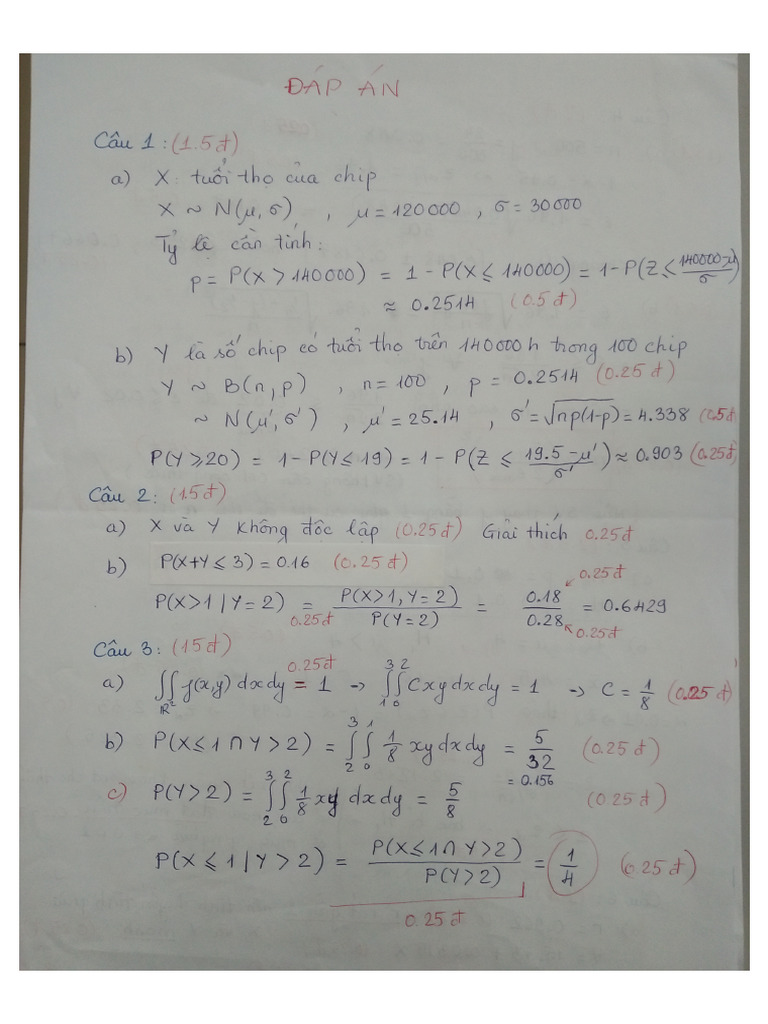 ĐÁP ÁN
Câu 1: (1.5đ)
a) X: tuổi thọ của chip
X ~ N(μ, σ) , μ = 120000 , σ = 30000
Tỷ lệ cần tính:
p = P(X > 140000) = 1 - P(X ≤ 140000) = 1 - P(Z ≤ (140000-μ)/σ)
≈ 0.2514 (0.5đ)
b) Y là số chip có tuổi thọ trên 140000h trong 100 chip
Y ~ B(n, p) , n = 100 , p = 0.2514 (0.25đ)
~ N(μ', σ') , μ' = 25.14 , σ' = √np(1-p) = 4.338 (0.5đ
P(Y ≥ 20) = 1 - P(Y ≤ 19) = 1 - P(Z ≤ (19.5-μ')/σ') ≈ 0.903 (0.25đ)
Câu 2: (1.5đ)
a) X và Y không độc lập (0.25đ) Giải thích 0.25đ
b) P(X+Y ≤ 3) = 0.16 (0.25đ)
0.25đ
P(X>1 | Y=2) = P(X>1, Y=2)/P(Y=2) = 0.18/0.28 = 0.6429
0.25đ 0.25đ
Câu 3: (15đ)
0.25đ
a) ∬_{ℝ²} f(x,y) dxdy = 1 → ∫₁³∫₀² Cxy dxdy = 1 → C = 1/8 (0.25đ)
b) P(X ≤ 1 ∩ Y > 2) = ∫₂³∫₀¹ 1/8 xy dxdy = 5/32 (0.25đ)
= 0.156
c) P(Y > 2) = ∫₂³∫₀² 1/8 xy dxdy = 5/8 (0.25đ)
P(X ≤ 1 | Y > 2) = P(X ≤ 1 ∩ Y > 2)/P(Y > 2) = 1/4 (0.25đ)
0.25đ